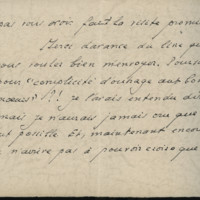 vous avoir fait la visite promi
Merci d'avance du livre que
vous voulez bien m'envoyer. Poursu
pour "complicité d'outrage aux bon
mœurs" ?!! je l'avais entendu di
mais je n'aurais jamais cru que
fut possible et, maintenant encor
n'arrive pas à pouvoir croire que